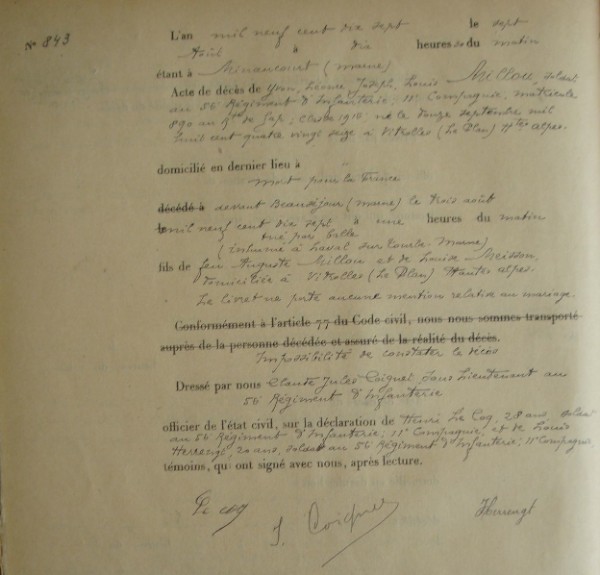 N° 843
L'an mil neuf cent dix sept le sept
Août à dix heures du matin
étant à Minaucourt (Marne)
Acte de décès de Yvon, Joseph, Louis Millou, soldat
au 56e Régiment d'Infanterie; 11e Compagnie, matricule
890 au de Gap; classe 1916; né le douze septembre mil
huit cent quatre vingt seize à Vitrolles (Le Plan) Htes Alpes.
domicilié en dernier lieu à "
Mort pour la France
décédé à devant Beauséjour (Marne) le trois août
le mil neuf cent dix sept à une heures du matin
tué par balle
(inhumé à Laval sur Tourbe Marne)
fils de feu Auguste Millou et de Louise Meisson,
domiciliée à Vitrolles (Le Plan) Hautes Alpes.
Le livret ne porte aucune mention relative au mariage.
Conformément à l'article 77 du Code civil, nous nous sommes transporté
auprès de la personne décédée et assuré de la réalité du décès.
Impossibilité de constater le décès
Dressé par nous Claude Jules Coignet, Sous Lieutenant au
56e Régiment d'Infanterie
officier de l'état civil, sur la déclaration de Henri Le Coq, 28 ans, soldat
au 56e Régiment d'Infanterie; 11e Compagnie, et de Louis
Herrengt, 20 ans, soldat au 56e Régiment d'Infanterie; 11e Compagnie,
témoins, qui ont signé avec nous, après lecture.
Le coq J. Coignet Herrengt